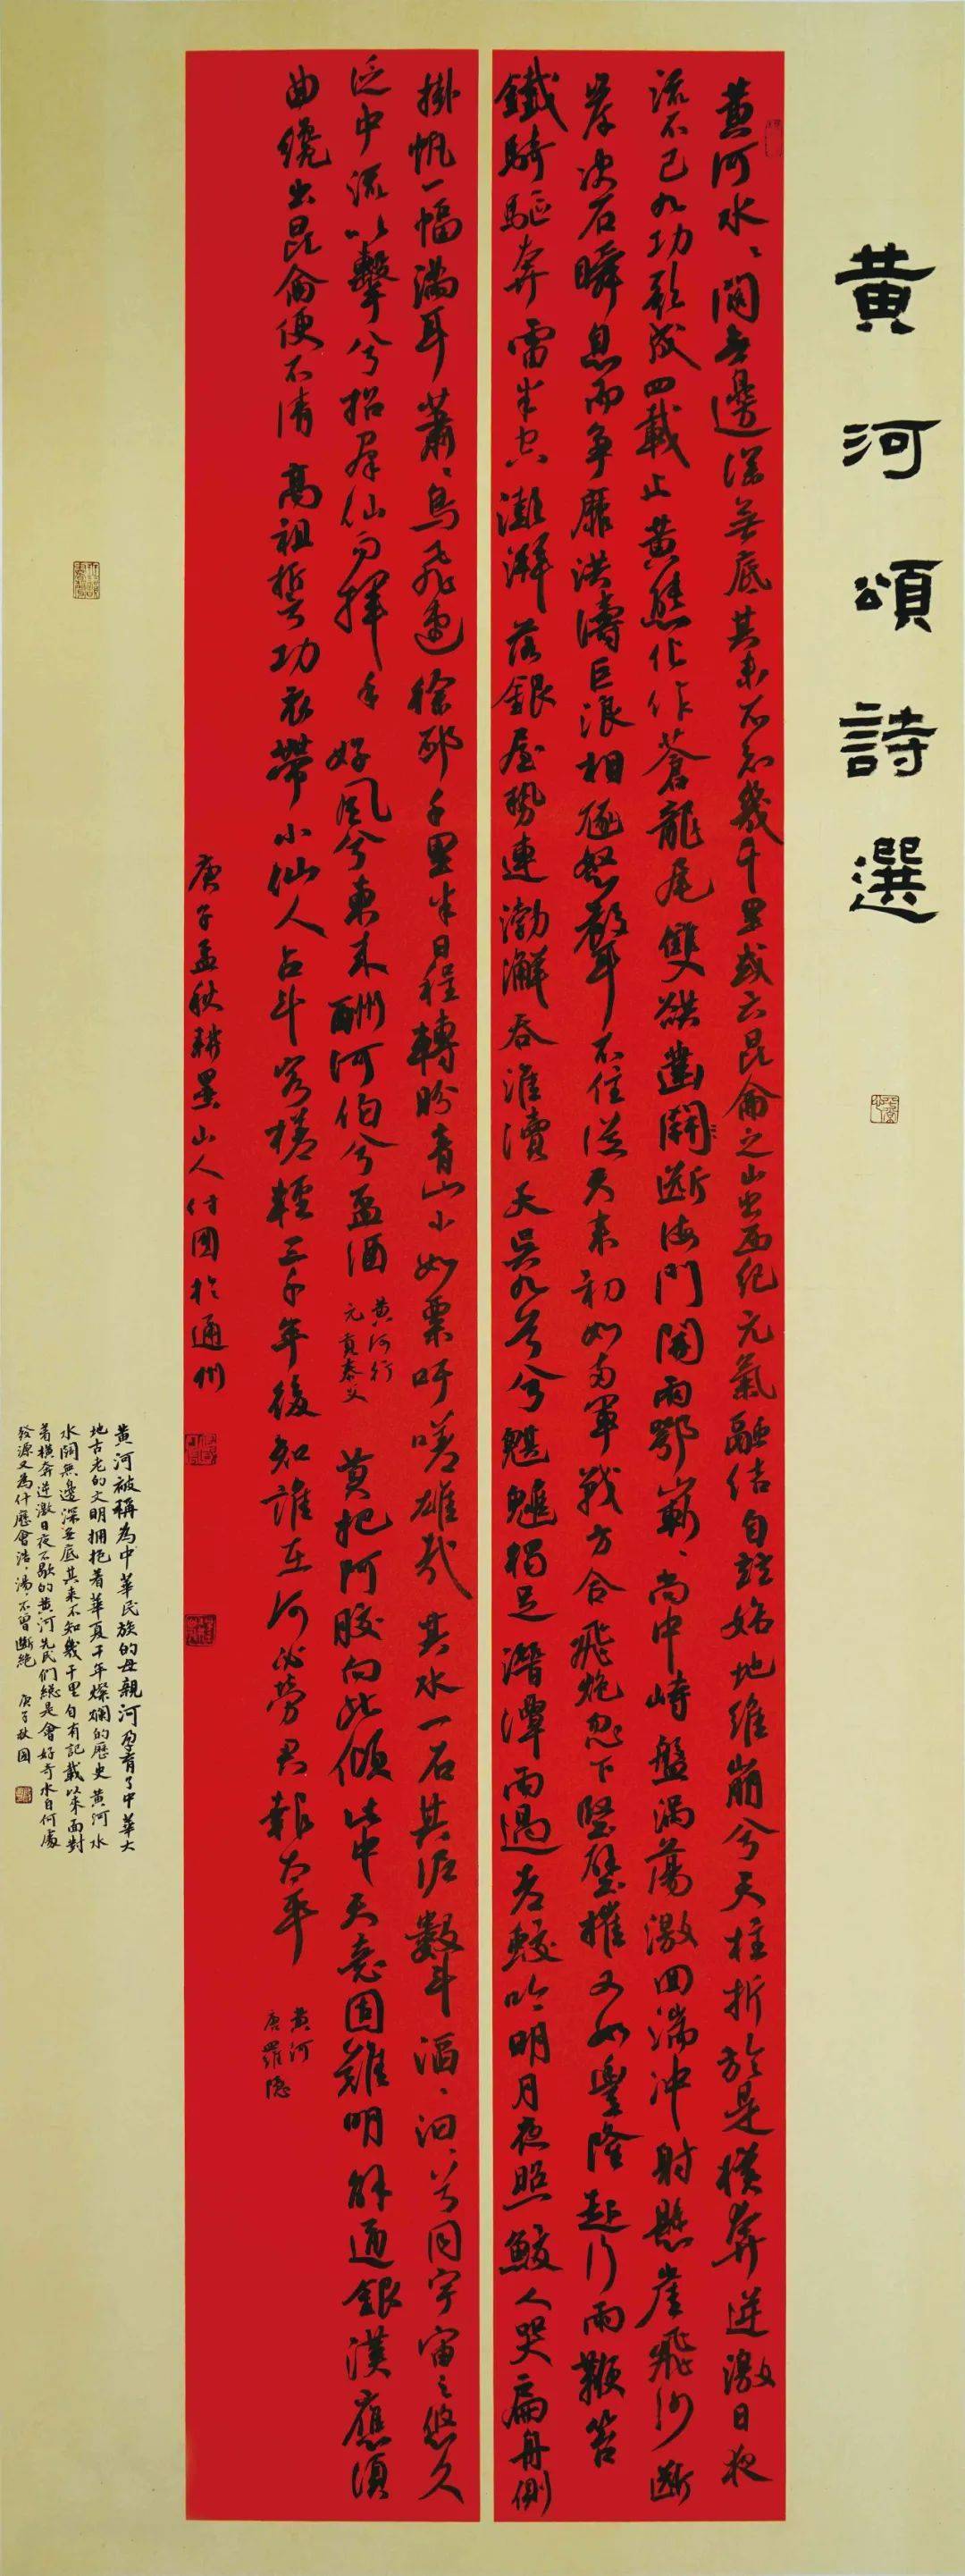 黃河頌詩選
黃河水水闊無邊深無底其來不知幾千里或云昆侖之山出西紀元氣融結自玆始地維崩兮天柱折於是橫奔逆激日夜
流不已九功歌成四載止黃熊化作蒼龍尾雙谼鑿開斷海門開兩鄂嶄嶄尚中峙盤渦蕩激回湍冲射懸崖飛沙斷
岸決石瞬息而爭靡洪濤巨浪相豗怒聲不住從天來初如兩軍戰方合飛炮忽下堅壁摧又如豐隆起行雨鞭笞
鐵騎驅奔雷半空澎湃落銀屋勢連渤澥吞淮瀆天吳九首兮魌魖獨足潛潭雨過老蛟吟明月夜照鮫人哭扁舟側
掛帆一幅滿耳蕭蕭鳥飛速徐邳千里半日程轉盼青山小如粟吁嗟雄哉其水一石其泥數斗滔滔汩汩兮同宇宙之悠久
泛中流以擊兮招群仙而揮手好風兮東來酬河伯兮盃酒
黃河行
元貢泰父
莫把阿膠向此傾此中天意固難明解通銀漢應須
曲纔出昆侖便不清高祖誓功衣帶小仙人占斗客槎輕三千年後知誰在何必勞君報太平
黃河
唐羅隱
庚子孟秋耕墨山人付國於通州
黃河被稱為中華民族的母親河孕育了中華大
地古老的文明擁抱着華夏千年燦爛的歷史黃河水
水闊無邊深無底其來不知幾千里自有記載以來面對
着橫奔逆激日夜不歇的黃河先民們總是會好奇水自何處
發源又為什麼會浩浩湯湯不曾斷絕庚子秋國